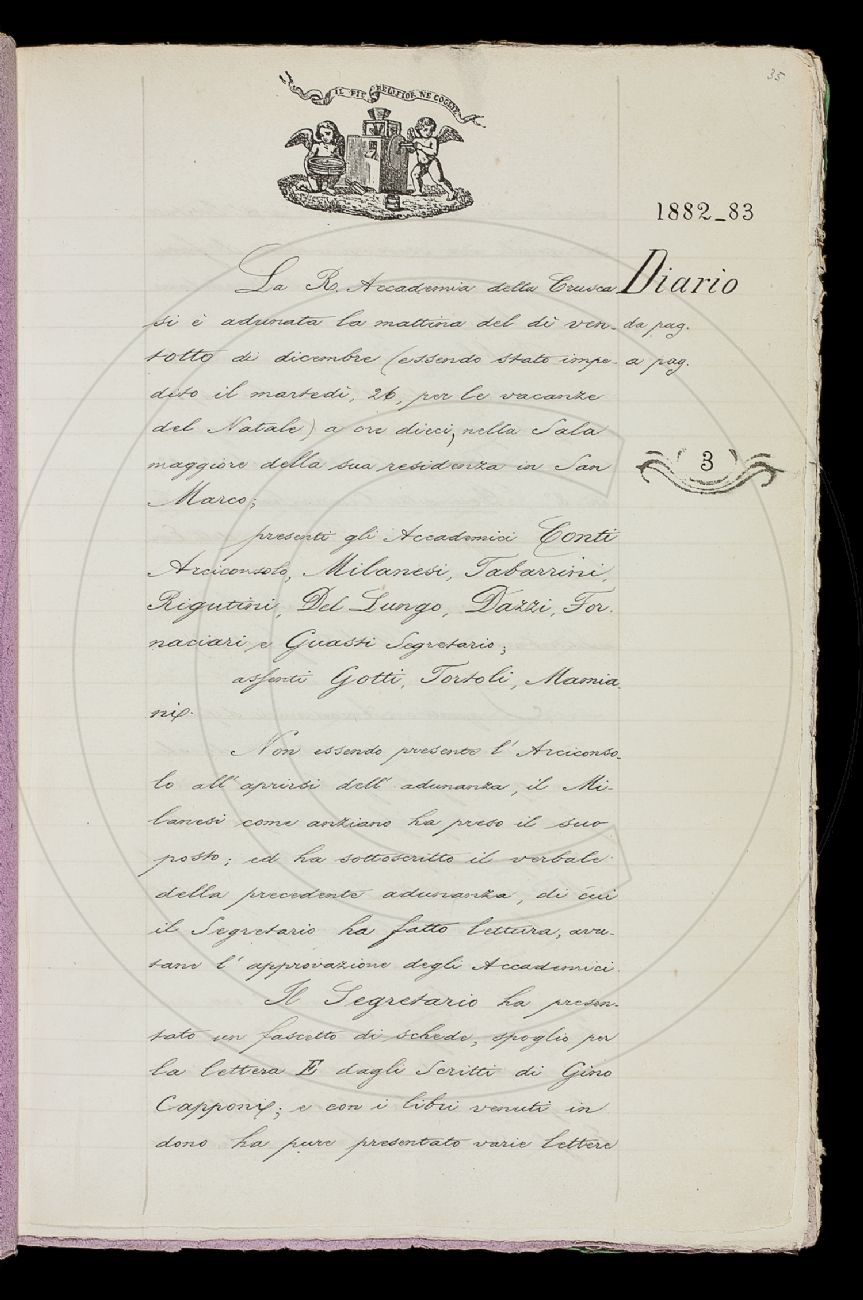 35
IL PIÙ BEL FIOR NE COGLIE
1882_83
Diario
da pag.
a pag.
3
La R. Accademia della Crusca
si è adunata la mattina del dì ven-
totto di dicembre (essendo stato impe-
dito il martedì, 26, per le vacanze
del Natale) a ore dieci, nella Sala
maggiore della sua residenza in San
Marco;
presenti gli Accademici Conti
Arciconsolo, Milanesi, Tabarrini,
Rigutini, Del Lungo, Dazzi, For-
naciari, e Guasti Segretario;
assenti Gotti, Tortoli, Mamia-
ni.
Non essendo presente l'Arciconso-
lo all'aprirsi dell'adunanza, il Mi-
lanesi come anziano ha preso il suo
posto; ed ha sottoscritto il verbale
della precedente adunanza, di cui
il Segretario ha fatto lettura, avu-
tane l'approvazione degli Accademici.
Il Segretario ha presen-
tato un fascetto di schede, spoglio per
la lettera E dagli Scritti di Gino
Capponi; e con i libri venuti in
dono ha pure presentato varie lettere